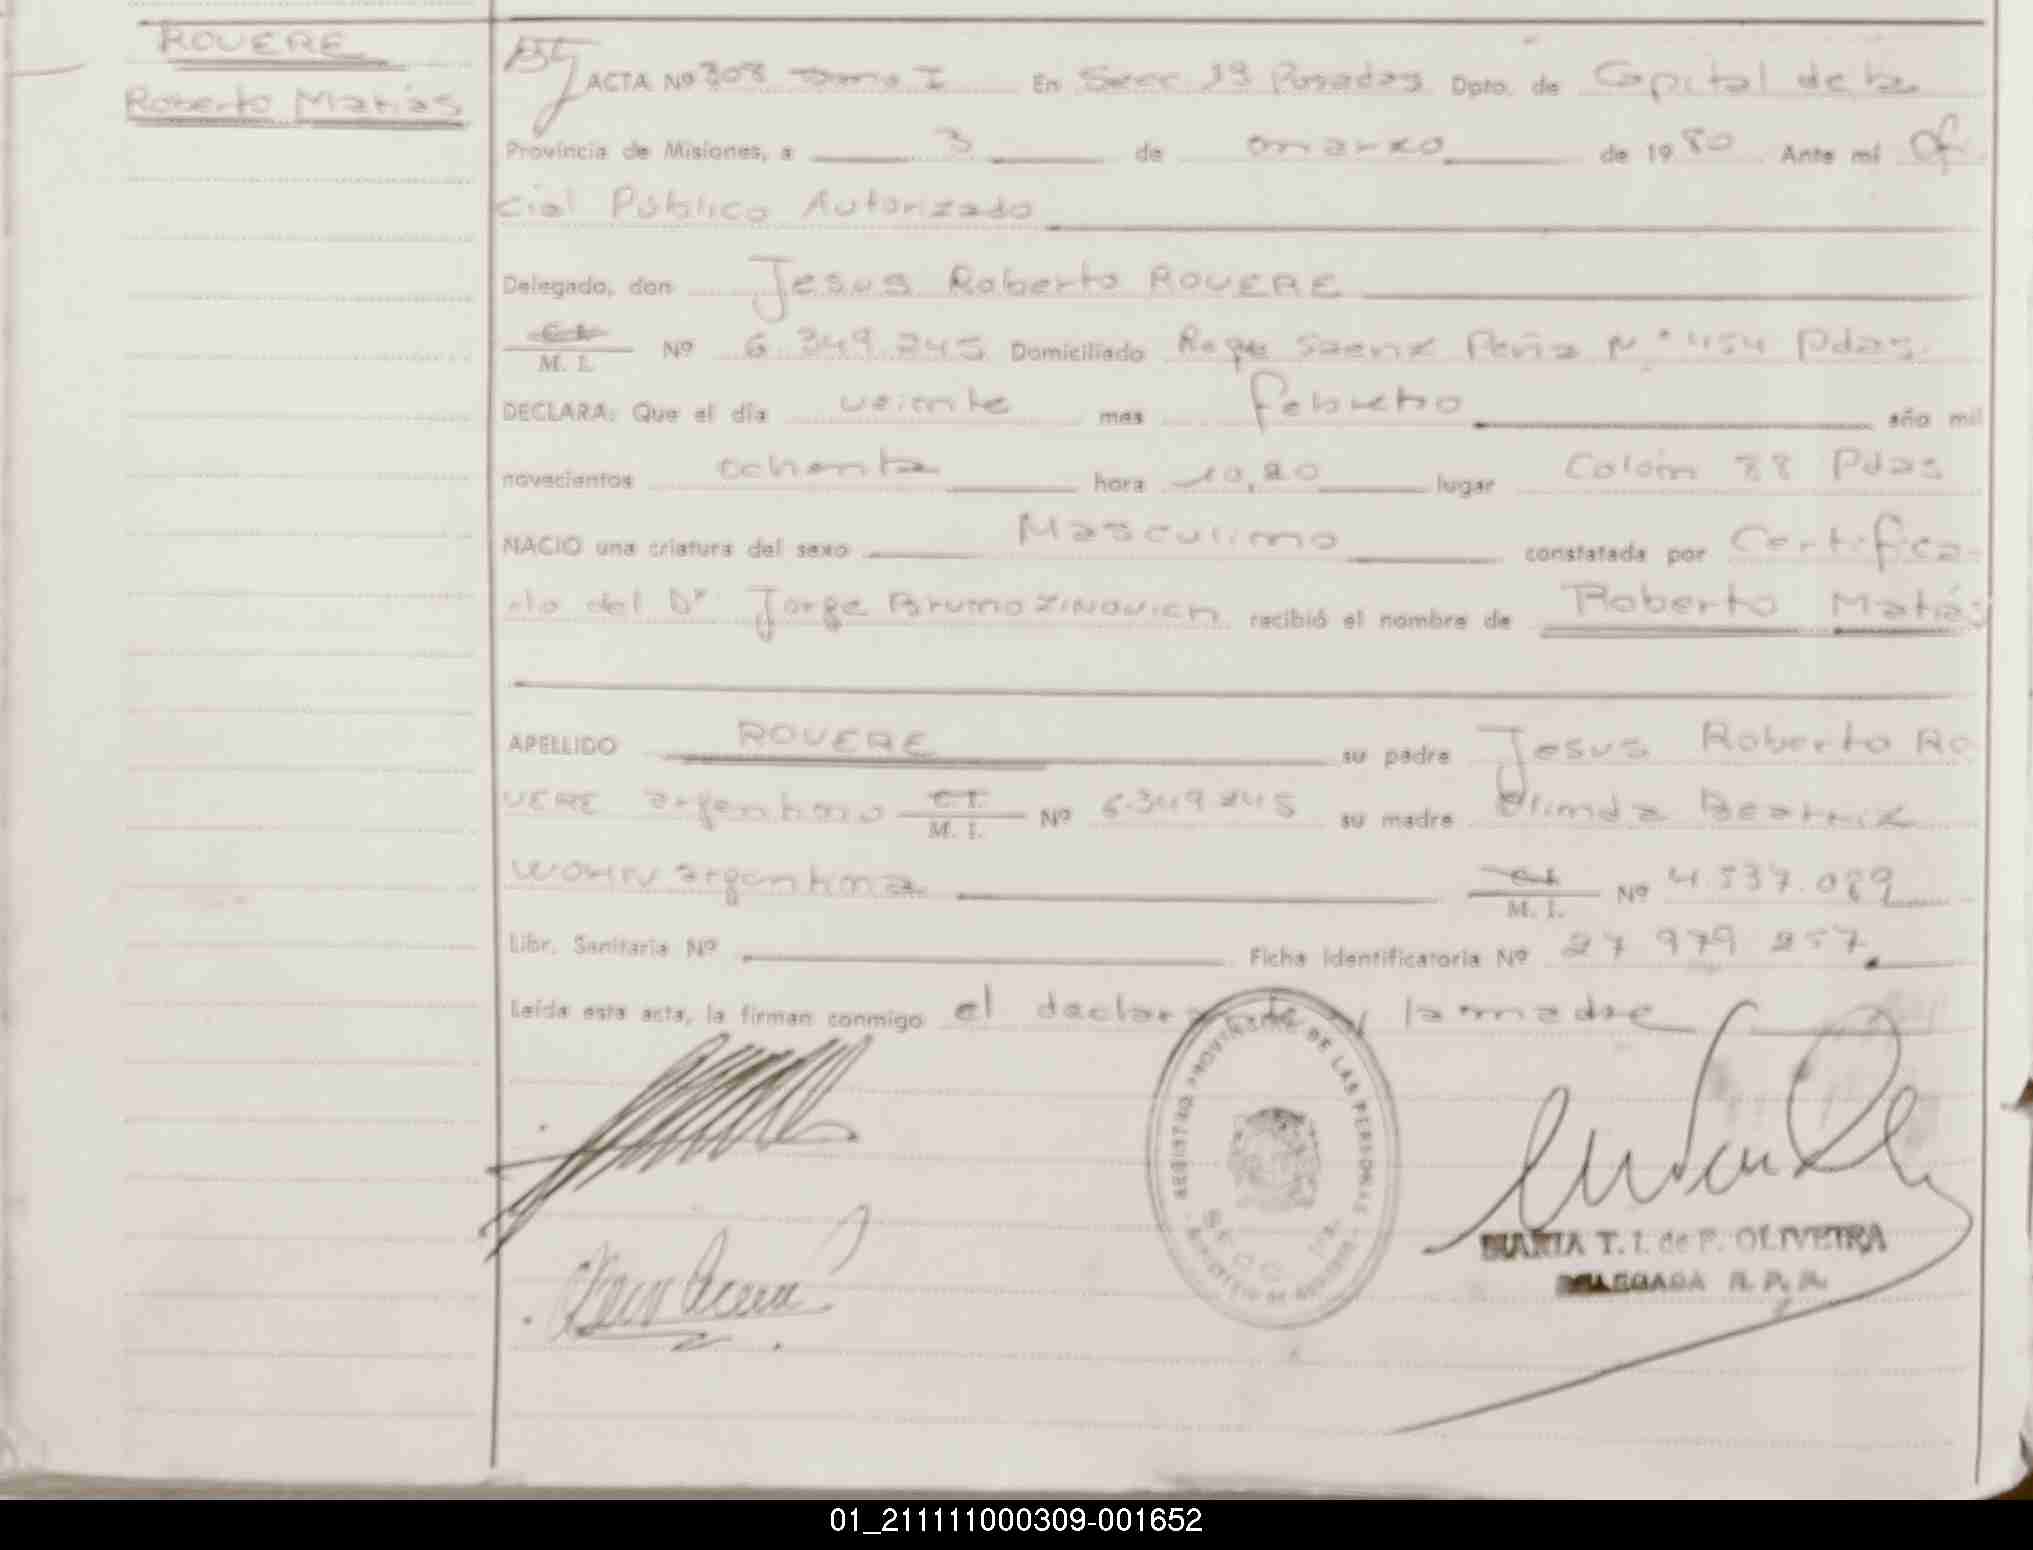 ROUERE
Roberto Matias
ACTA Nº 308 Tomo I En Secc 1ª Posadas Dpto. de Capital de la
Provincia de Misiones, a 3 de marzo de 1980 Ante mí Ofi
cial Público Autorizado
Delegado, don Jesus Roberto ROUERE
C. I.
M. I. Nº 6.349.245 Domiciliado Roque Saenz Peña N° 454 Pdas.
DECLARA: Que el día veinte mes febrero año mil
novecientos ochenta hora 10,20 lugar Colón 88 Pdas
NACIO una criatura del sexo Masculino constatada por Certifica-
do del Dr Jorge Bruno ZINOVICH recibió el nombre de Roberto Matias
APELLIDO ROUERE su padre Jesus Roberto RO
UERE argentino C.I.
M. I. Nº 6.349.245 su madre Olinda Beatriz
WOHN argentina C.I.
M. I. Nº 4.537.089
Libr. Sanitaria Nº Ficha identificatoria Nº 27 979 257.
Leída esta acta, la firman conmigo el declarante y la madre
REGISTRO PROVINCIAL DE LAS PERSONAS
MARTA T. I. de F. OLIVEIRA
DELEGADA R. P. P.
01_211111000309-001652